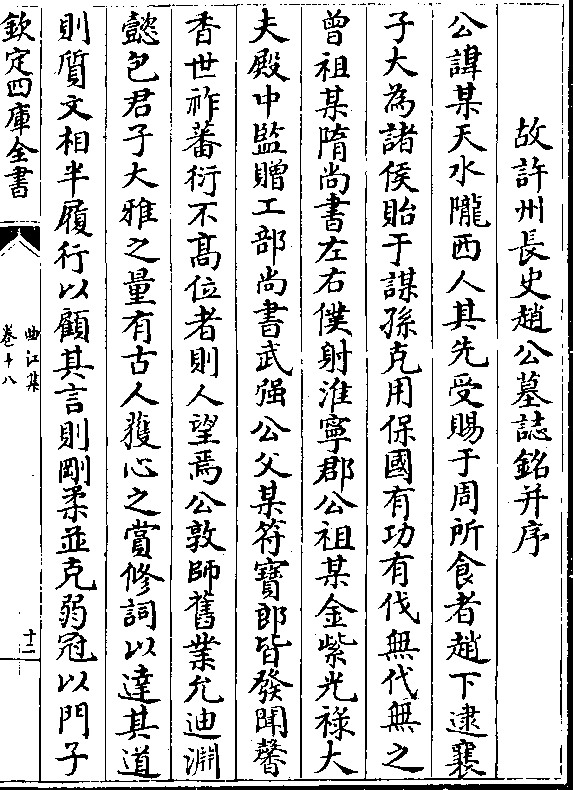 故許州長史趙公墓誌銘并序
公諱某天水隴西人其先受賜于周所食者趙下逮襄
子大為諸侯貽于謀孫克用保國有功有伐無代無之
曾祖某隋尚書左右僕射淮寧郡公祖某金紫光祿大
夫殿中監贈工部尚書武强公父某符寶郎皆發聞馨
香世祚蕃衍不髙位者則人望焉公敦師舊業允迪淵
懿包君子大雅之量有古人獲心之賞修詞以達其道
則質文相半履行以顧其言則剛柔並克弱冠以門子
欽定四庫全書
曲江集
卷十八
十二